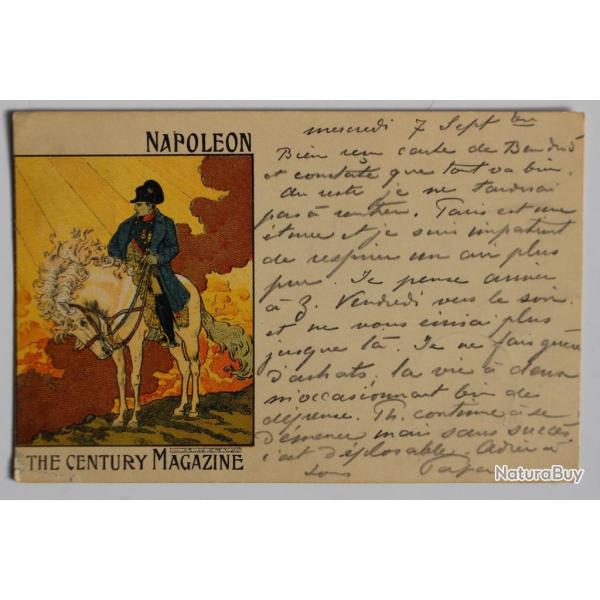 NAPOLEON
THE CENTURY MAGAZINE
mercredi 7 Sept bre
Bien reçu carte de
et constaté que tout va bien.
du reste je ne tarderai
pas à rentrer. Paris est une
étuve et je suis impatient
de respirer un air plus
pur. Je pense arriver
à 3. Vendredi vers le soir
et ne vous écrirai plus
jusque là. Je ne fais guère
d'achats. la vie à deux
m'occasionnant bien de
dépense. Th. continue à se
démener mais sans succès
c'est déplorable. Adieu à
tous Papa
NaturaBuy